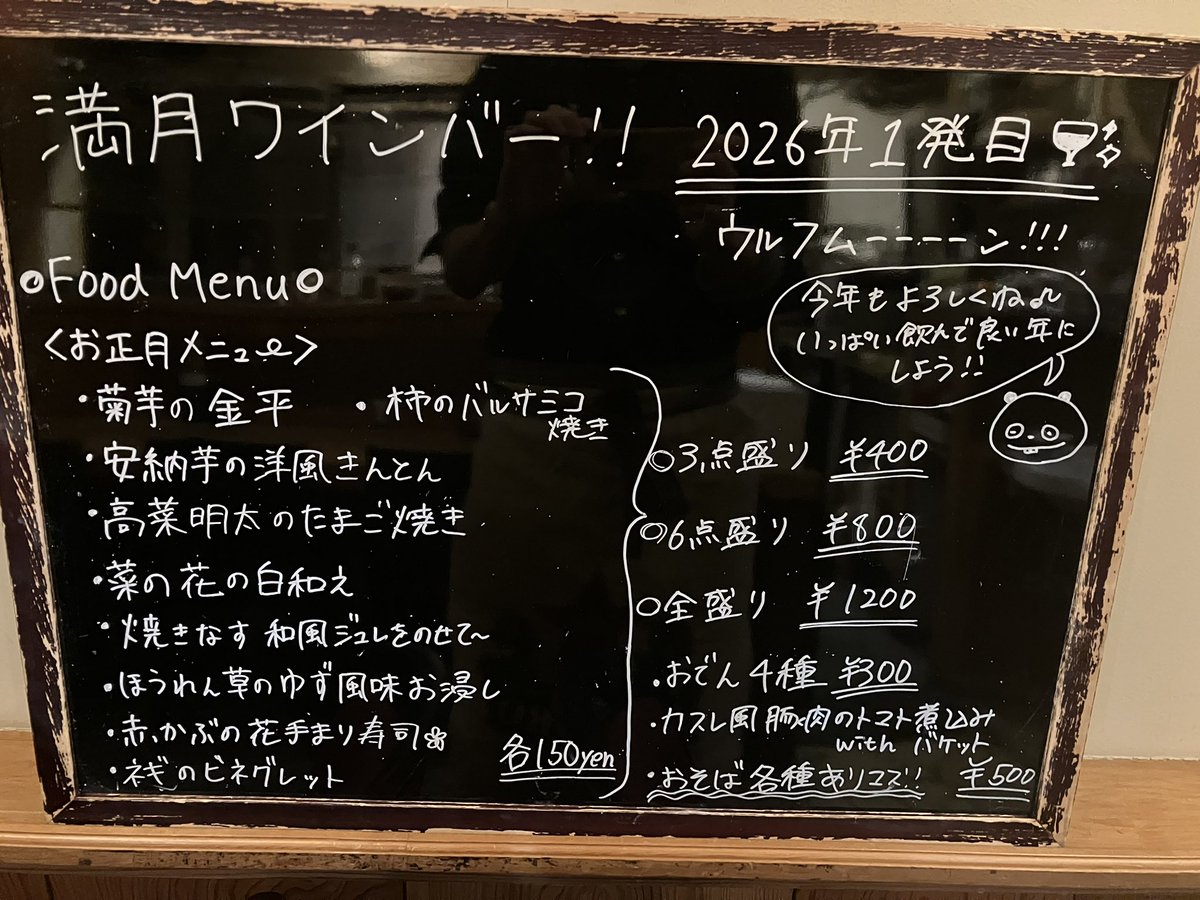 満月ワインバー!!
2026年1発目
ウルフムーーーーン!!!
今年もよろしくね♪
いっぱい飲んで良い年に
しよう!!
Food Menu
<お正月メニュー>
・菊芋の金平
・柿のバルサミコ
焼き
・安納芋の洋風きんとん
・高菜明太のたまご焼き
・菜の花の白和え
・焼きなす 和風ジュレをのせて〜
・ほうれん草のゆず風味お浸し
・赤かぶの花手まり寿司
・ネギのビネグレット
各150yen
◎3点盛り ¥400
◎6点盛り ¥800
○全盛り ¥1200
・おでん4種 ¥300
・カスレ風豚肉のトマト煮込み
with バケット
¥500
・おそば各種ありマス!!